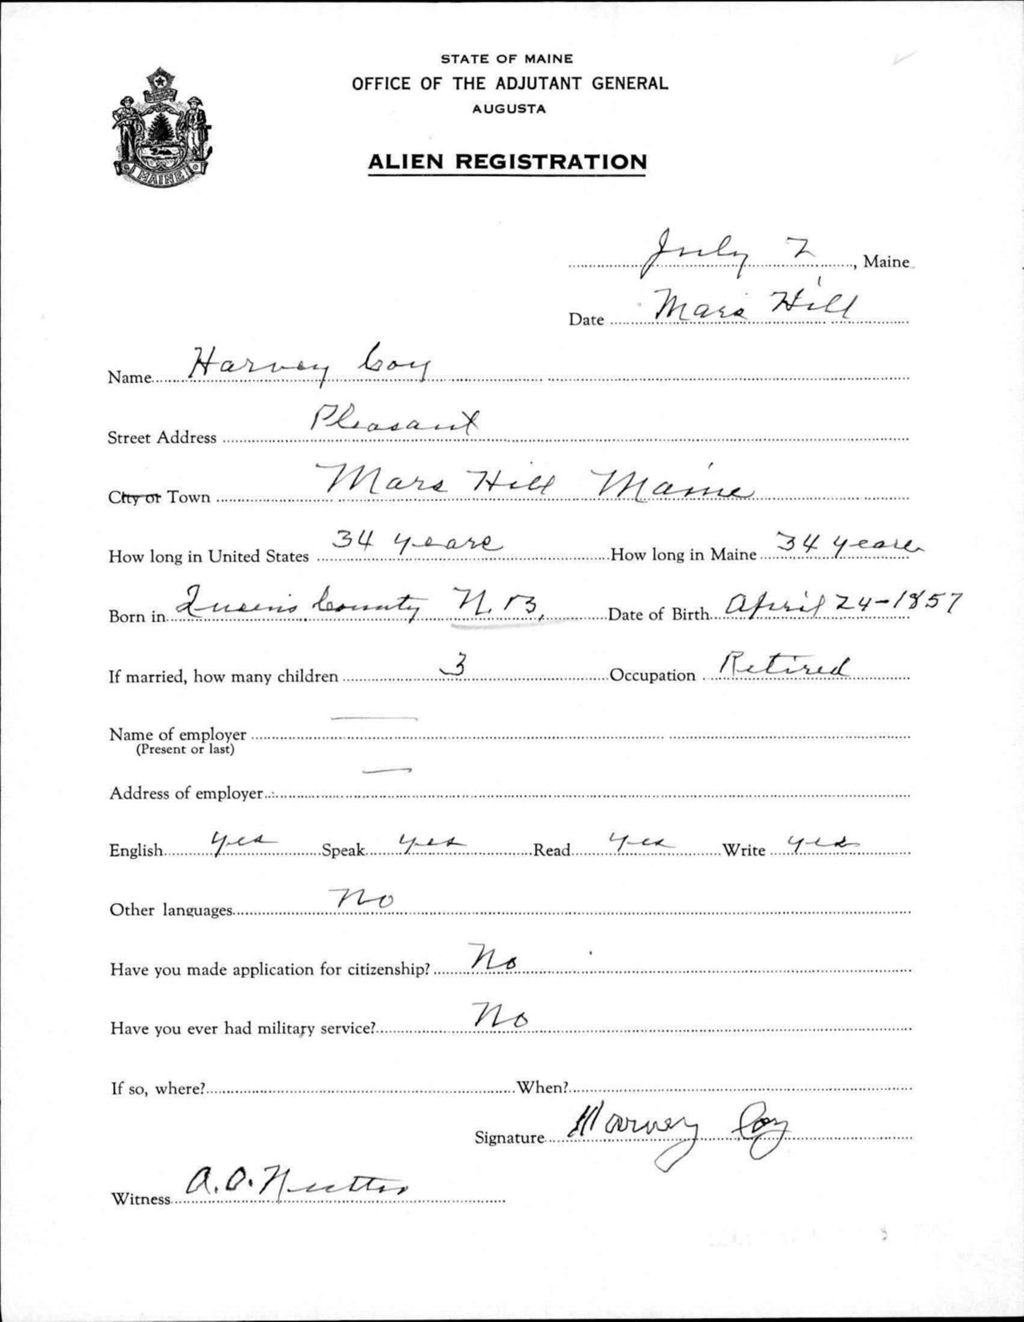 STATE OF MAINE
OFFICE OF THE ADJUTANT GENERAL
AUGUSTA
MAINE
ALIEN REGISTRATION
July 2, Maine
Date Mars Hill
Name Harvey Coy
Street Address Pleasant
City or Town Mars Hill Maine
How long in United States 34 years How long in Maine 34 years
Born in Queens County N.B, Date of Birth April 24-1857
If married, how many children 3 Occupation Retired
Name of employer
(Present or last)
Address of employer
English yes Speak yes Read yes Write yes
Other languages No
Have you made application for citizenship? No
Have you ever had military service? No
If so, where? When?
Signature Harvey Coy
Witness A.O.